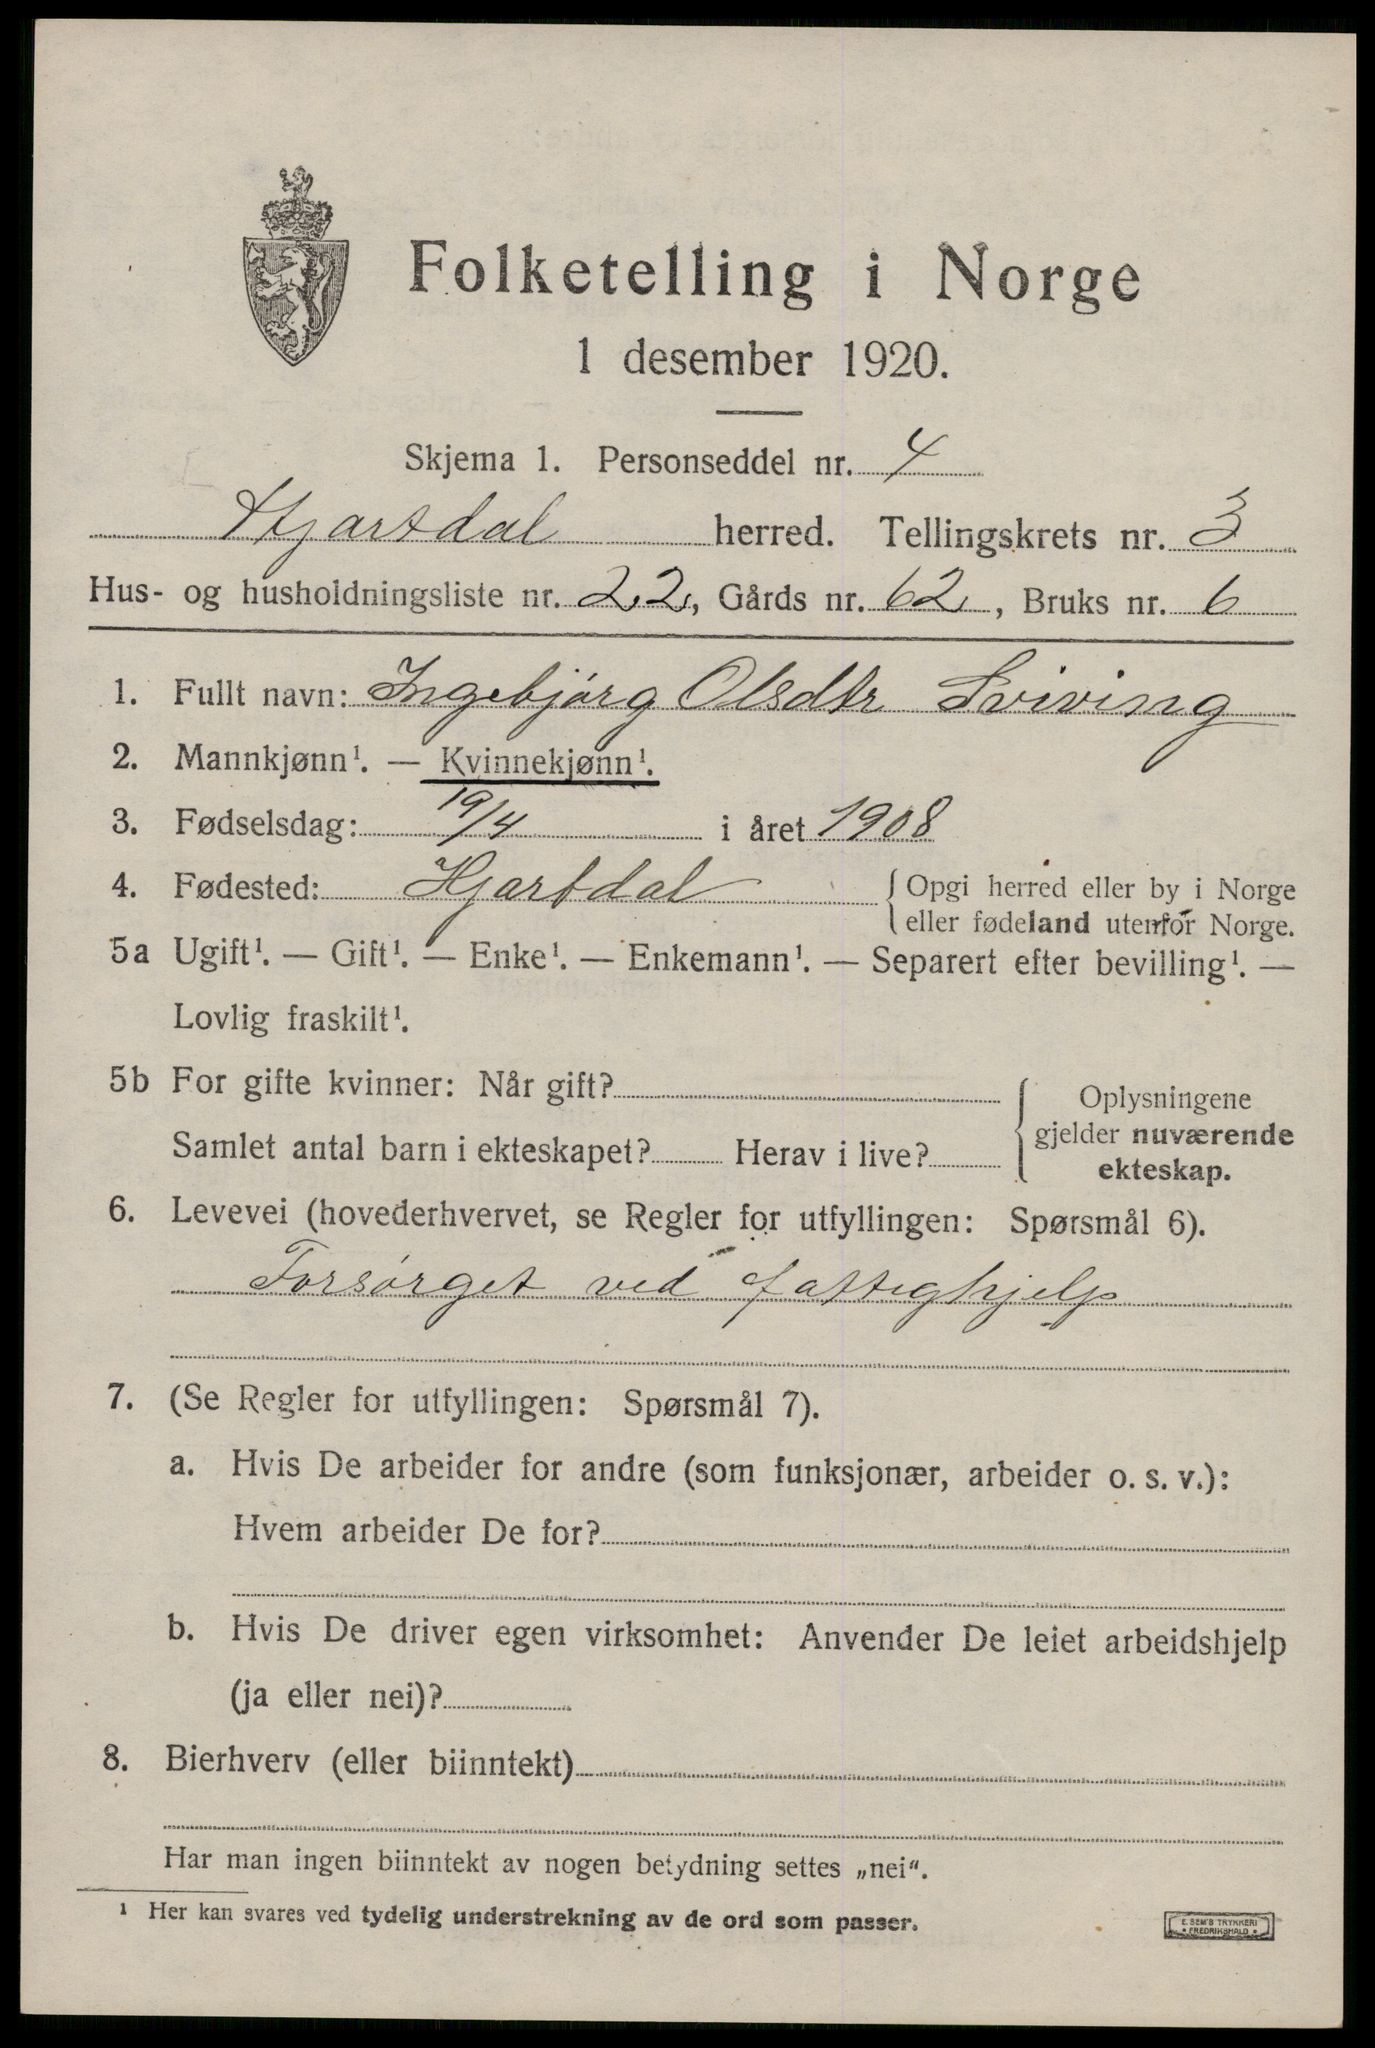 Folketelling i Norge
1 desember 1920.
Skjema 1. Personseddel nr. 4
Hjartdal herred. Tellingskrets nr. 3
Hus- og husholdningsliste nr. 22, Gårds nr. 62, Bruks nr. 6
1. Fullt navn: Ingebjørg Olsdtr Sviving
2. Mannkjønn¹. — Kvinnekjønn¹.
3. Fødselsdag: 19/4 i året 1908
4. Fødested: Hjartdal { Opgi herred eller by i Norge
eller fødeland utenfor Norge.
5a Ugift¹. — Gift¹. — Enke¹. — Enkemann¹. — Separert efter bevilling¹. —
Lovlig fraskilt¹.
5b For gifte kvinner: Når gift? { Oplysningene
gjelder nuværende
Samlet antal barn i ekteskapet? Herav i live?
ekteskap.
6. Levevei (hovederhvervet, se Regler for utfyllingen: Spørsmål 6).
Forsørget ved fattighjelp
7. (Se Regler for utfyllingen: Spørsmål 7).
a. Hvis De arbeider for andre (som funksjonær, arbeider o. s. v.):
Hvem arbeider De for?
b. Hvis De driver egen virksomhet: Anvender De leiet arbeidshjelp
(ja eller nei)?
8. Bierhverv (eller biinntekt)
Har man ingen biinntekt av nogen betydning settes „nei“.
¹ Her kan svares ved tydelig understrekning av de ord som passer.
E. SEM'S TRYKKERI
• FREDRIKSHALD •